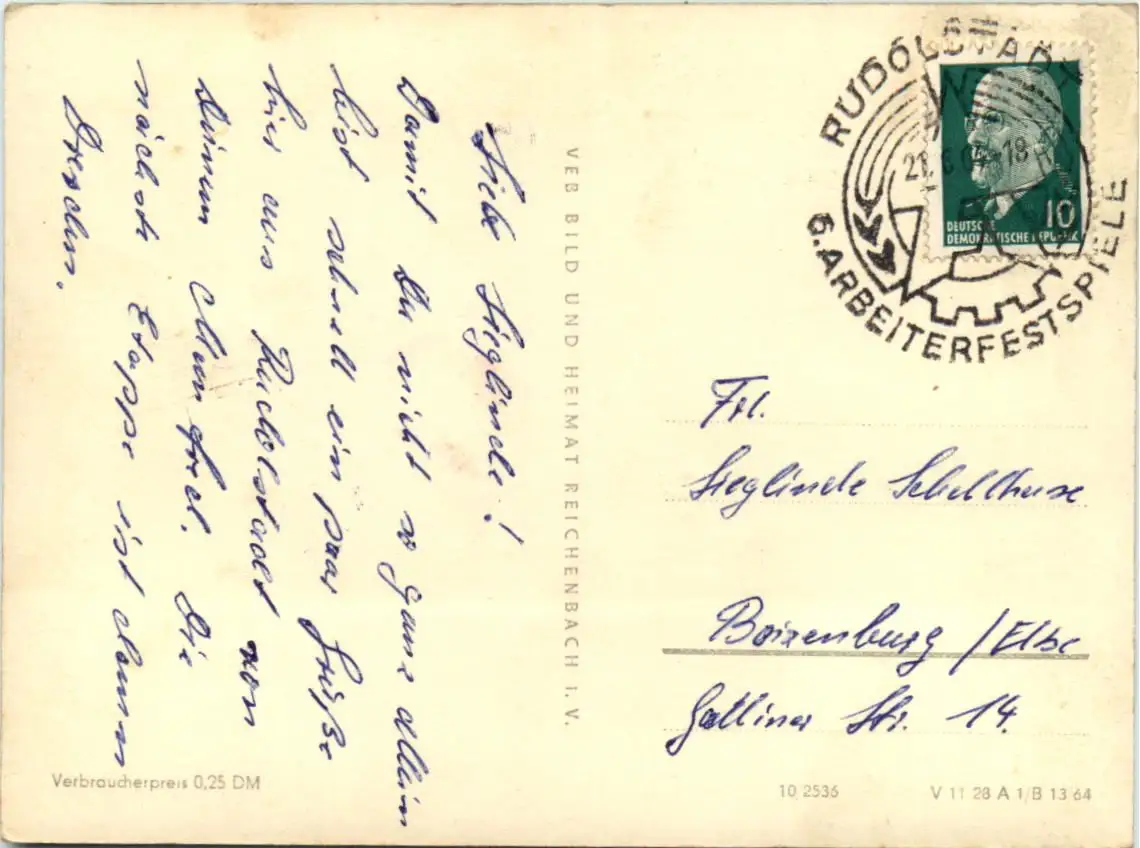 Liebe Sieglinde!
Damit Du nicht so ganz allein
bist schnell ein paar Grüße
hier aus Rudolstadt von
Deinem Manfred. Die
nächste Etappe ist dann
Dresden.
VEB BILD UND HEIMAT REICHENBACH I. V.
RUDOLSTADT
6. ARBEITERFESTSPIELE
10
DEUTSCHE
DEMOKRATISCHE REPUBLIK
Frl.
Sieglinde Schellhase
Boizenburg / Elbe
Galliner Str. 14.
Verbraucherpreis 0,25 DM
10 2536
V 11 28 A 1/B 13 64